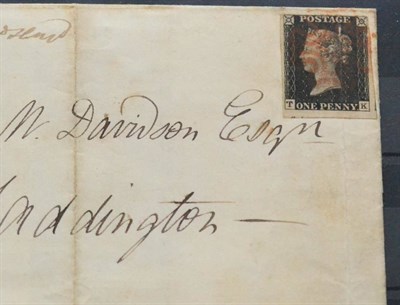 POSTAGE
T ONE PENNY K
W. Davidson Esqr
Haddington